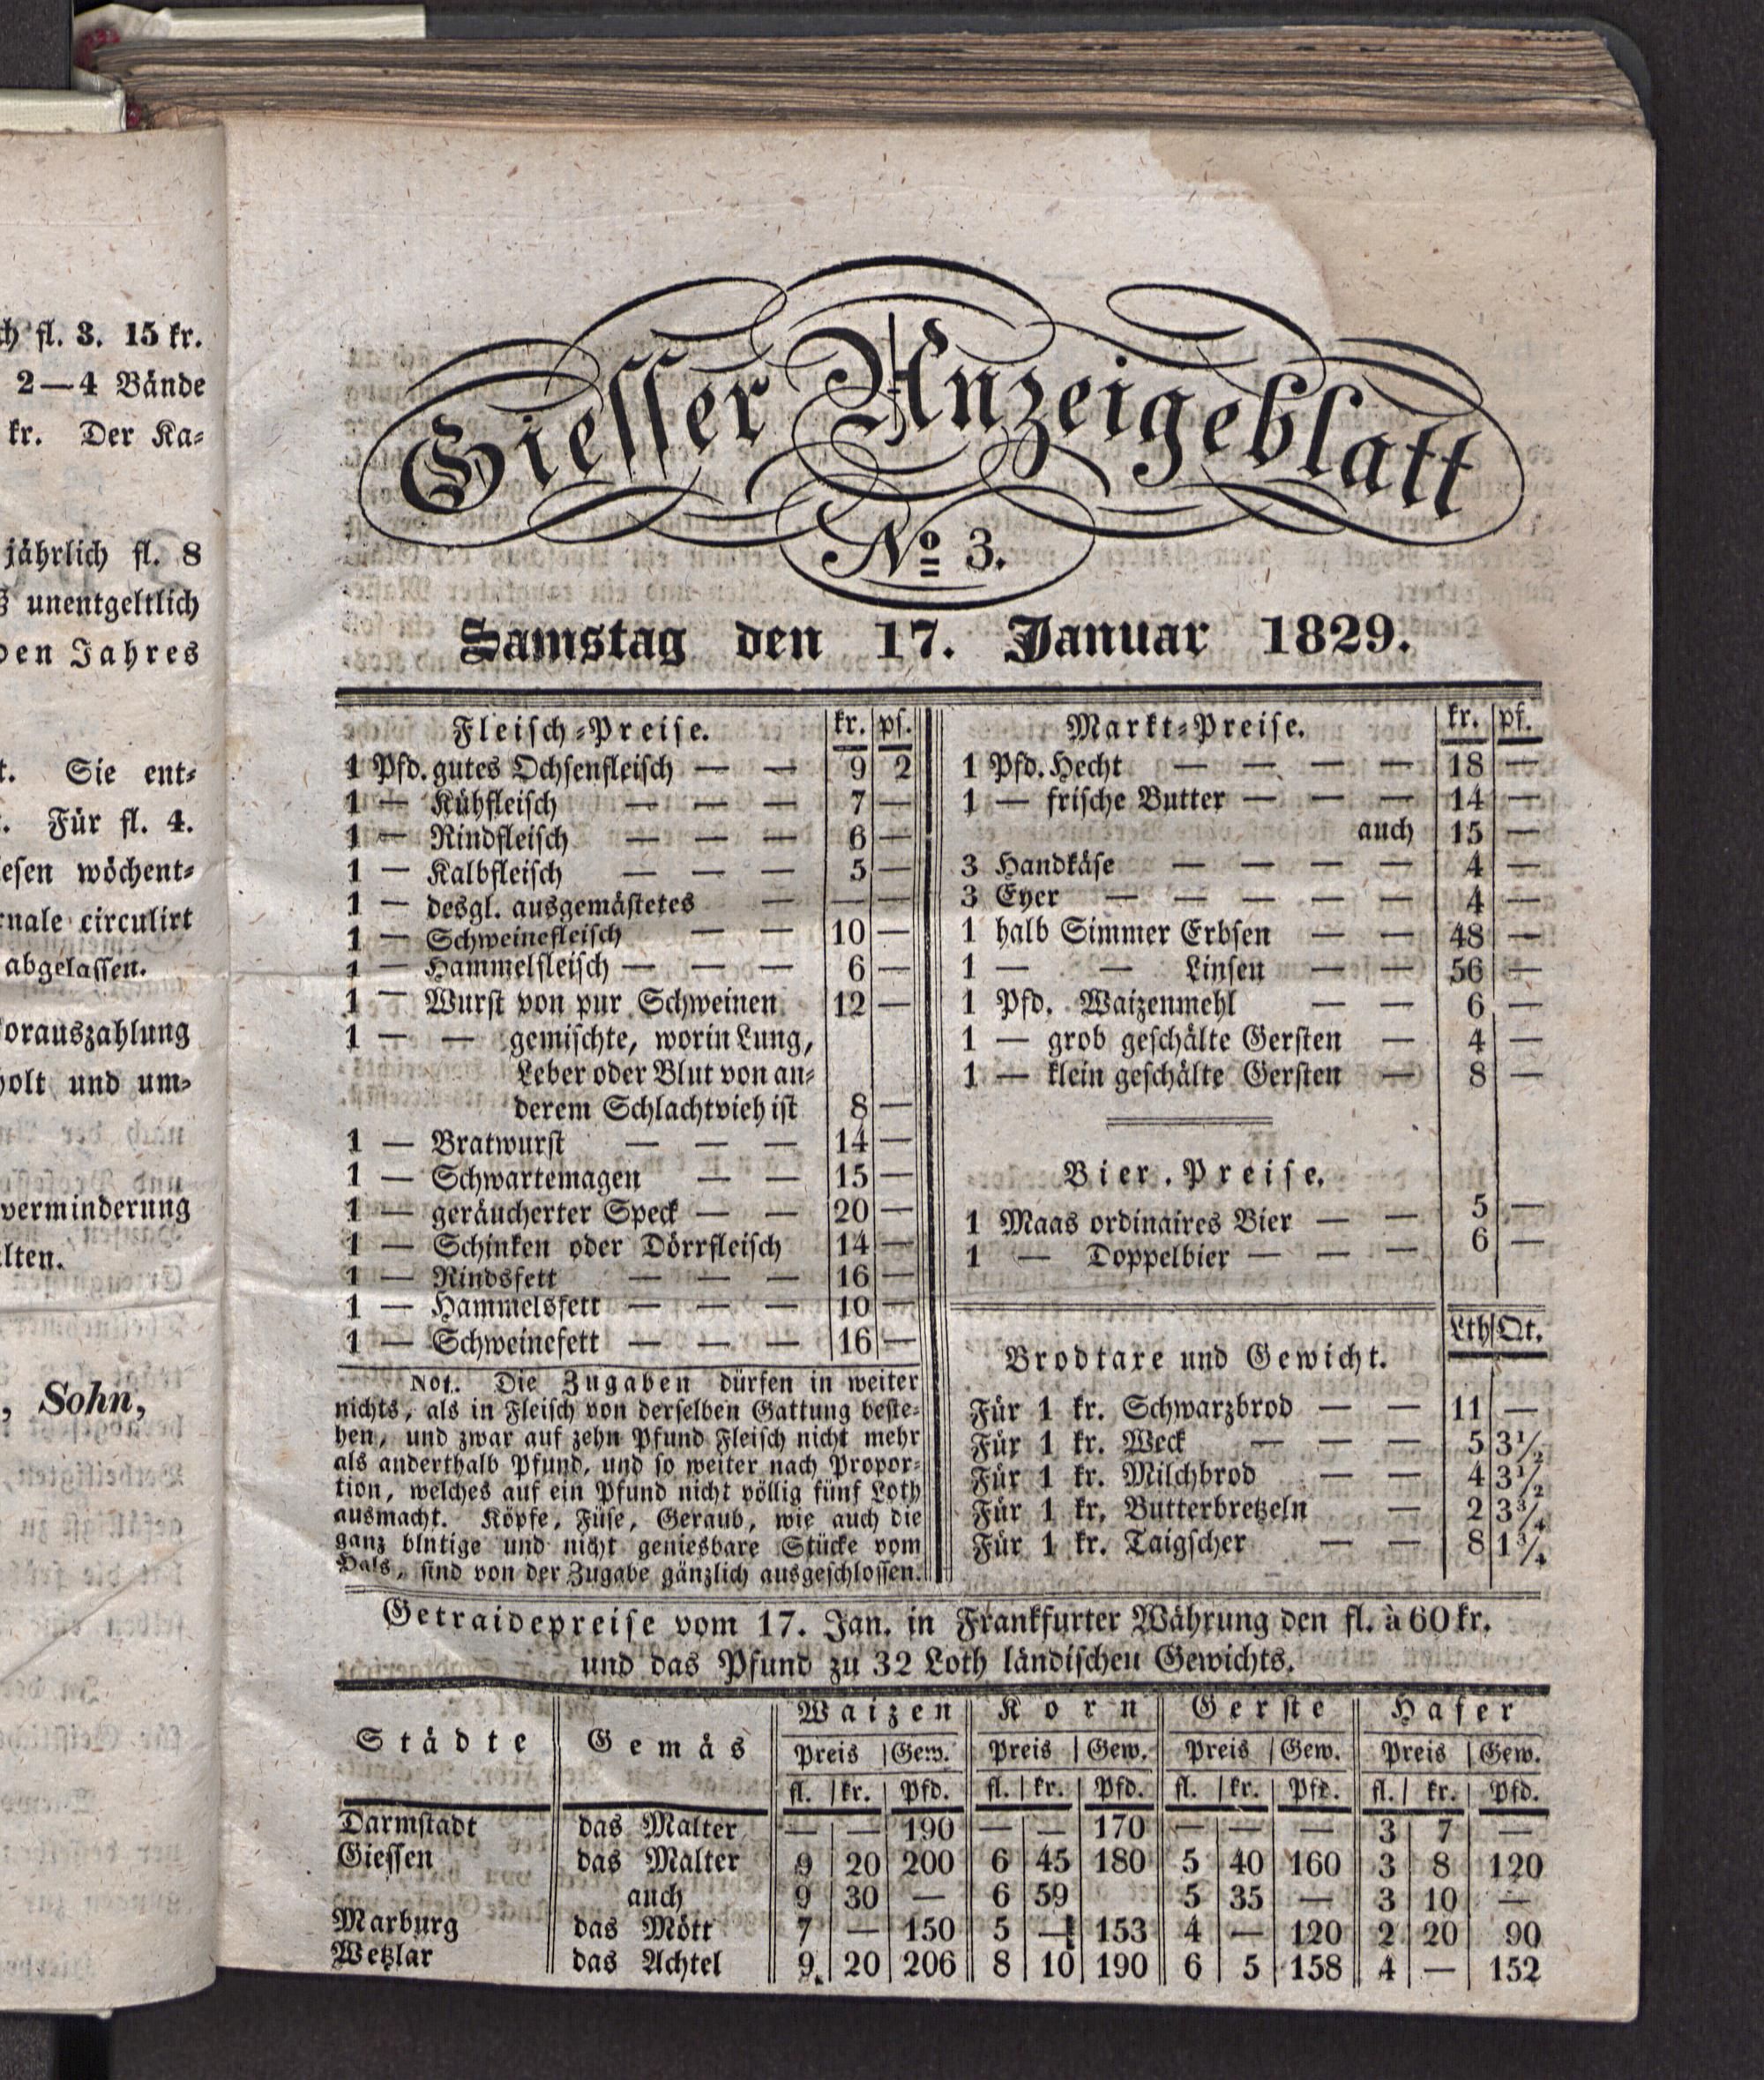 ch fl. 3. 15 kr.
2—4 Bände
kr. Der Ka-
jährlich fl. 8
unentgeltlich
den Jahres
t. Sie ent-
Für fl. 4.
esen wöchent-
rnale circulirt
abgelassen.
orauszahlung
holt und um-
verminderung
lten.
, Sohn,
Giesser Anzeigeblatt
No 3.
Samstag den 17. Januar 1829.
Fleisch-Preise. kr. pf.
1 Pfd. gutes Ochsenfleisch — — 9 2
1 — Kühfleisch — — — 7 —
1 — Rindfleisch — — — 6 —
1 — Kalbfleisch — — — 5 —
1 — desgl. ausgemästetes — — —
1 — Schweinefleisch — — 10 —
1 — Hammelfleisch — — — 6 —
1 — Wurst von pur Schweinen 12 —
1 — — gemischte, worin Lung,
Leber oder Blut von an-
derem Schlachtvieh ist 8 —
1 — Bratwurst — — — 14 —
1 — Schwartemagen — — 15 —
1 — geräucherter Speck — — 20 —
1 — Schinken oder Dörrfleisch 14 —
1 — Rindsfett — — — 16 —
1 — Hammelsfett — — — 10 —
1 — Schweinefett — — — 16 —
Not. Die Zugaben dürfen in weiter
nichts, als in Fleisch von derselben Gattung beste-
hen, und zwar auf zehn Pfund Fleisch nicht mehr
als anderthalb Pfund, und so weiter nach Propor-
tion, welches auf ein Pfund nicht völlig fünf Loth
ausmacht. Köpfe, Füse, Geraub, wie auch die
ganz blntige und nicht geniesbare Stücke vom
Hals, sind von der Zugabe gänzlich ausgeschlossen.
Markt-Preise. kr. pf.
1 Pfd. Hecht — — — — 18 —
1 — frische Butter — — — 14 —
auch 15 —
3 Handkäse — — — — 4 —
3 Eyer — — — — — 4 —
1 halb Simmer Erbsen — — 48 —
1 — — Linsen — — 56 —
1 Pfd. Waizenmehl — — 6 —
1 — grob geschälte Gersten — 4 —
1 — klein geschälte Gersten — 8 —
Bier. Preise.
1 Maas ordinaires Bier — — 5 —
1 — Doppelbier — — — 6 —
Lth Qt.
Brodtaxe und Gewicht.
Für 1 kr. Schwarzbrod — — 11 —
Für 1 kr. Weck — — — 5 3½
Für 1 kr. Milchbrod — — 4 3½
Für 1 kr. Butterbretzeln — 2 3¾
Für 1 kr. Taigscher — — 8 1¾
Getraidepreise vom 17. Jan. in Frankfurter Währung den fl. à 60 kr.
und das Pfund zu 32 Loth ländischen Gewichts.
Städte Gemäs Waizen Korn Gerste Hafer
Preis Gew. Preis Gew. Preis Gew. Preis Gew.
fl. kr. Pfd. fl. kr. Pfd. fl. kr. Pfd. fl. kr. Pfd.
Darmstadt das Malter — — 190 — — 170 — — — 3 7 —
Giessen das Malter 9 20 200 6 45 180 5 40 160 3 8 120
auch 9 30 — 6 59 5 35 — 3 10 —
Marburg das Mött 7 — 150 5 — 153 4 — 120 2 20 90
Wetzlar das Achtel 9 20 206 8 10 190 6 5 158 4 — 152